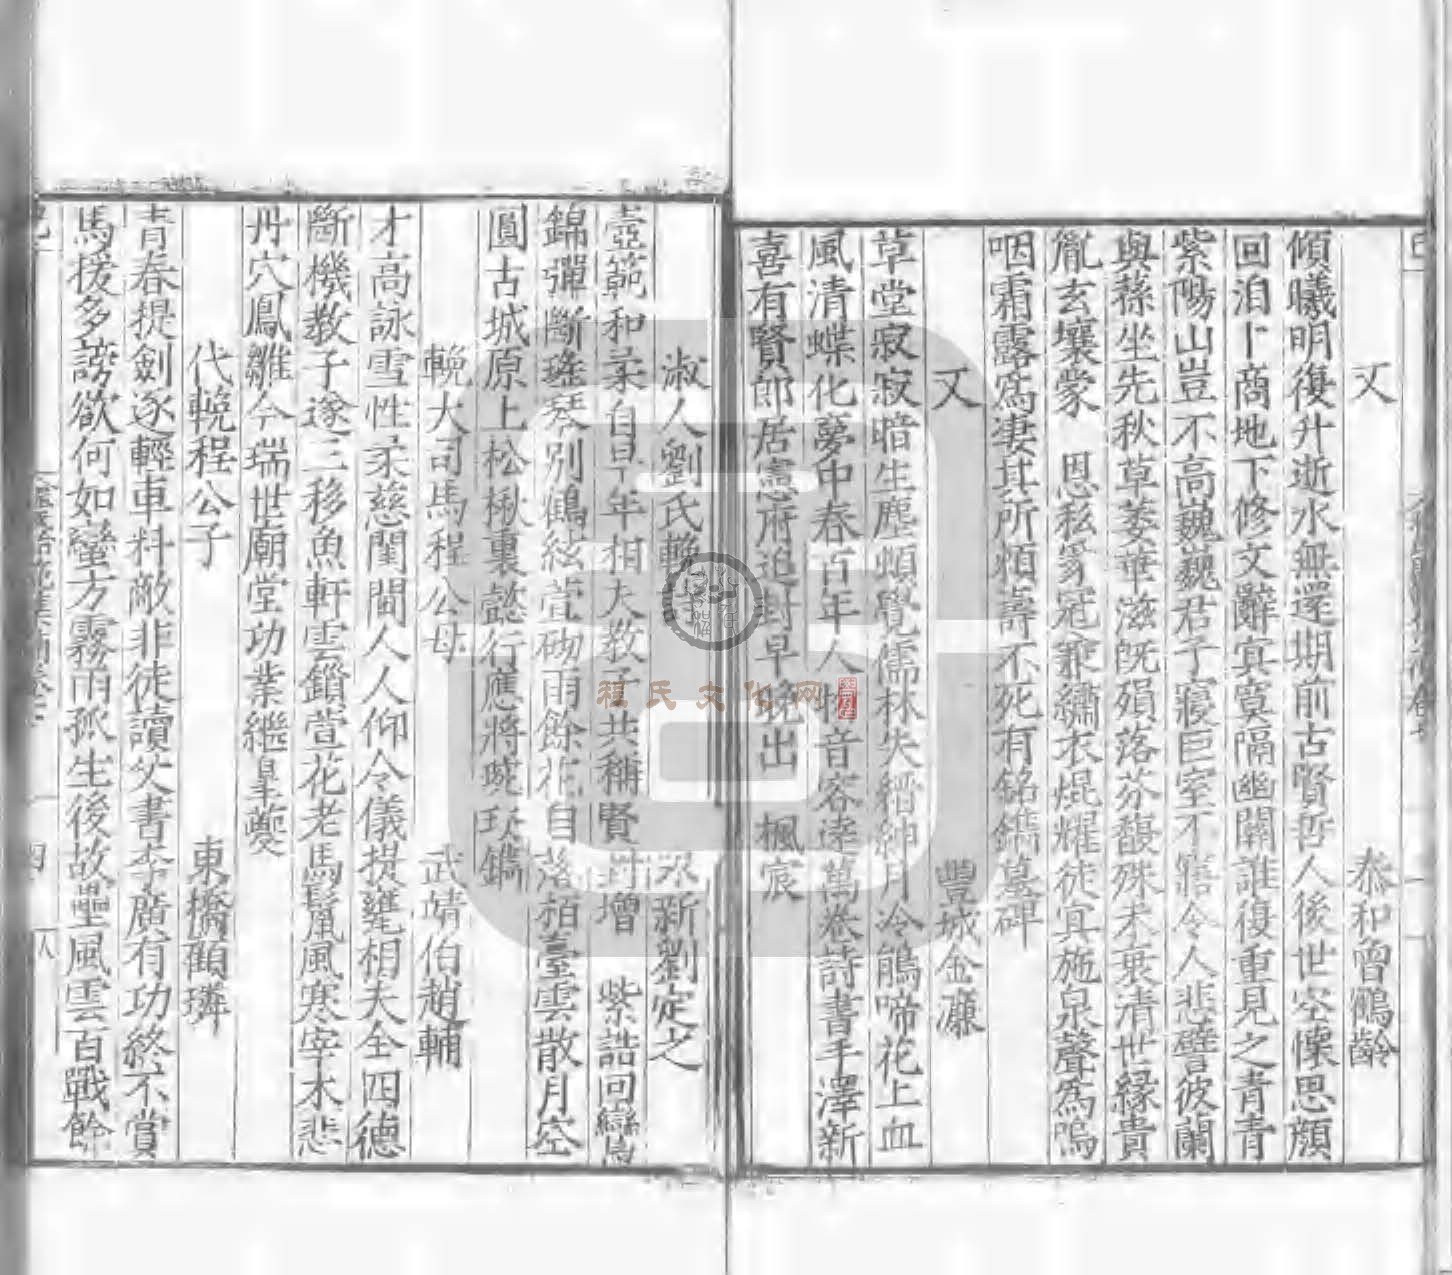 又 泰和曾鶴齡
傾曦明復升逝水無還期前古賢哲人後世空懷思顏
回洎卜商地下修文辭冥冥隔幽關誰復重見之青青
紫陽山豈不高巍巍君子寢巨室不寤令人悲譬彼蘭
與蓀坐先秋草萎華滋既殞落芬馥殊未衰清世緣貴
胤玄壤蒙 恩私豸冠兼繡衣焜耀徒冥施泉聲為嗚
咽霜露為凄其所煩壽不死有銘鐫墓碑
又 豐城金濂
草堂寂寂暗生塵頓覺儒林失搢紳月冷鵑啼花上血
風清蝶化夢中春百年人 音容逹萬卷詩書手澤新
喜有賢郎居憲府追封早晚出 楓宸
淑人劉氏輓 新劉定之
壼範和柔自 年相夫教子共稱賢 封增 紫誥回鸞
錦彈斷瑤琴別鶴絃萱砌雨餘花自落栢臺雲散月空
圓古城原上松楸裏懿行應將琬琰鐫
輓大司馬程公母 武靖伯趙輔
才高詠雪性柔慈閨閫人人仰令儀提甕相夫全四德
斷機教子遂三移魚軒雲鎖萱花老馬鬣風寒宰木悲
丹穴鳳雛今瑞世廟堂功業繼臯夔
代輓程公子 東橋顧璘
青春提劍逐輕車料敵非徒讀父書李廣有功終不賞
馬援多謗欲何如蠻方霧雨孤生後故壘風雲百戰餘
四
程氏文化网